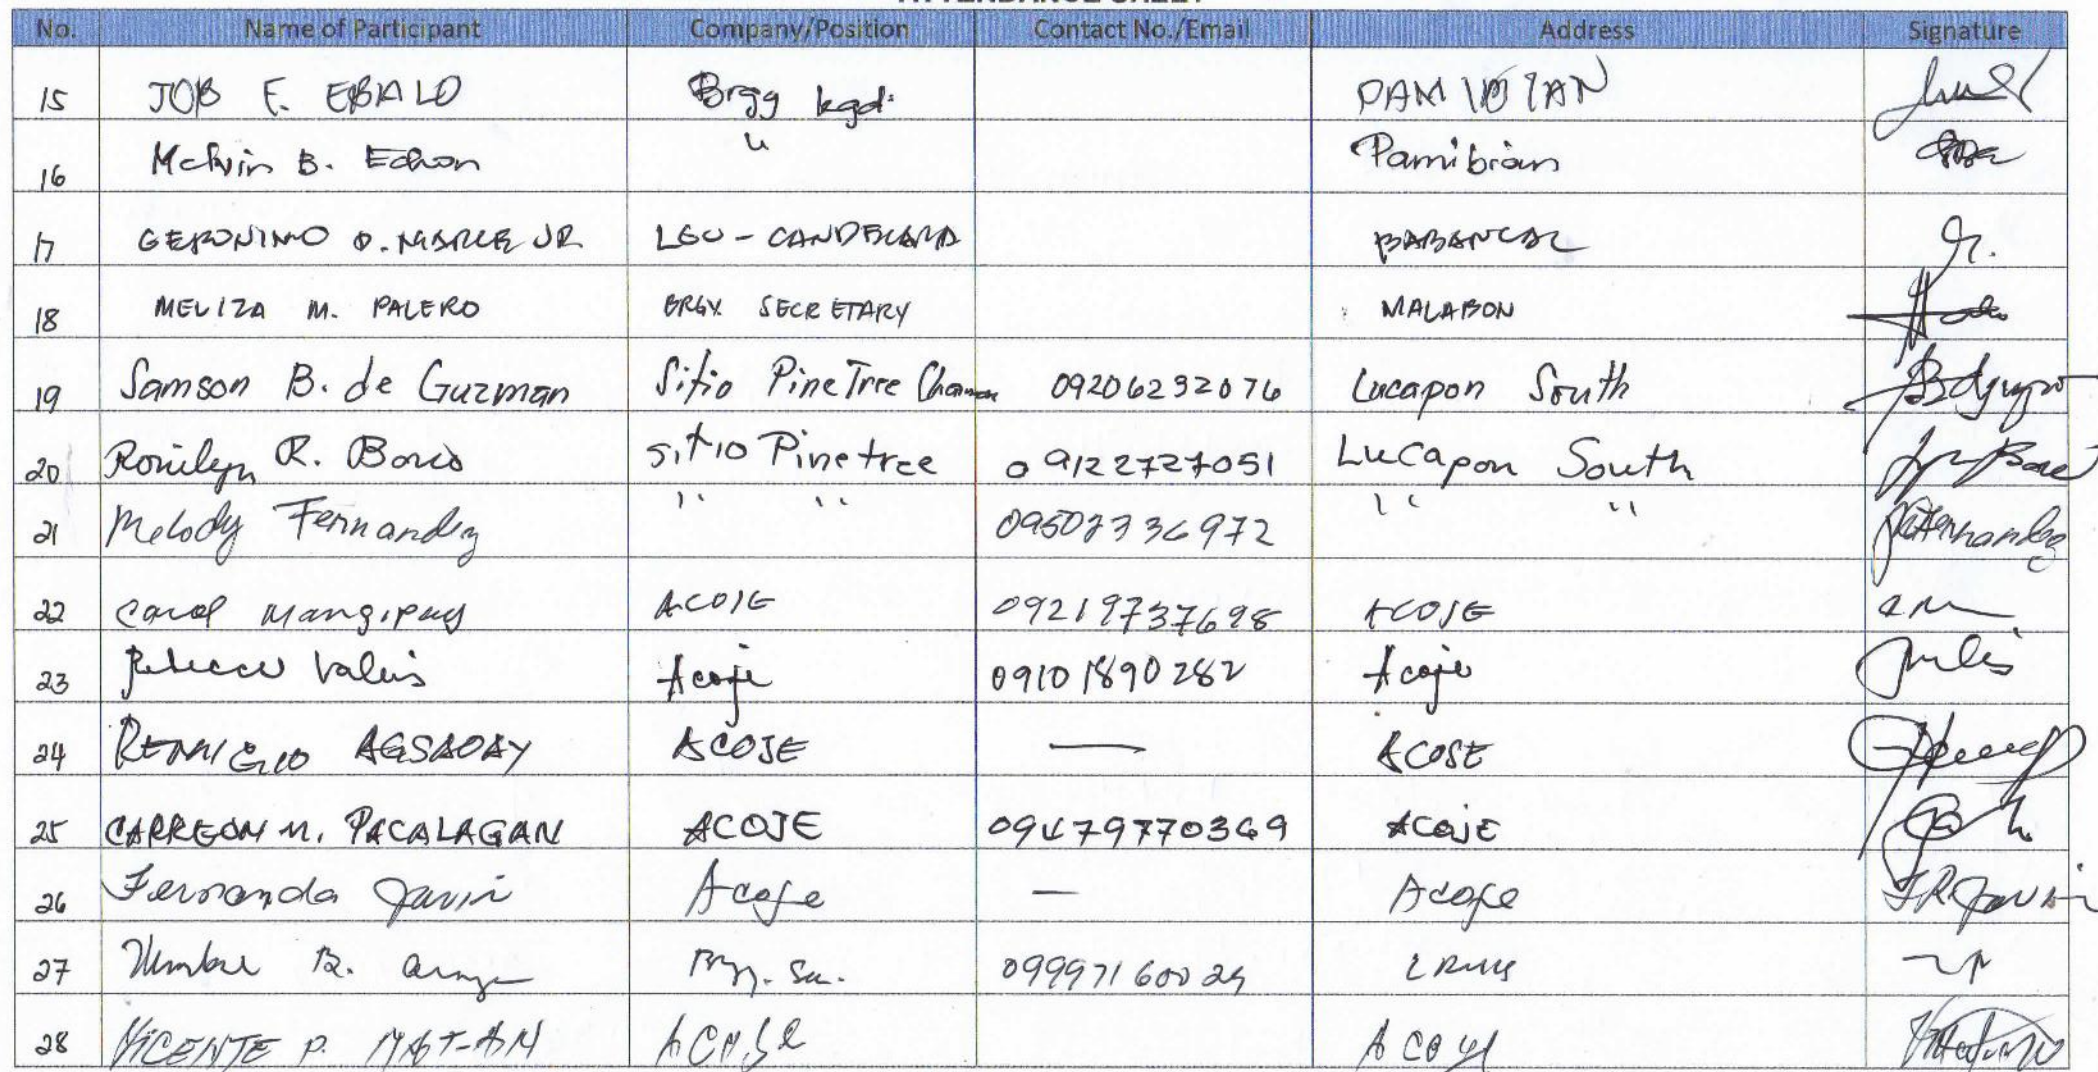 ATTENDANCE SHEET
No. Name of Participant Company/Position Contact No./Email Address Signature
15 JOB F. EBALO Brgy kgd. PAMIBIAN
16 Melvin B. Edhon " Pamibian
17 GERONIMO O. JR. LGU - CANDELARIA BABANCAL
18 MELIZA M. PALERO BRGY. SECRETARY MALABON
19 Samson B. de Guzman Sitio PineTree 09206232076 Lucapon South
20 Romilyn R. Borco sitio Pinetree 09122727051 Lucapon South
21 Melody Fernandez " " " "
22 Carol Mangipay ACOJE 09219737698 ACOJE
23 Rebecca Valdis Acoje 09101890282 Acoje
24 REMIGIO AGSAOAY ACOJE — ACOJE
25 CARREON M. PACALAGAN ACOJE 09479770369 ACOJE
26 Fernanda Javir Acoje — Acoje
27 B. Brgy. 
28 VICENTE P. MAT-AN ACOJE ACOJE